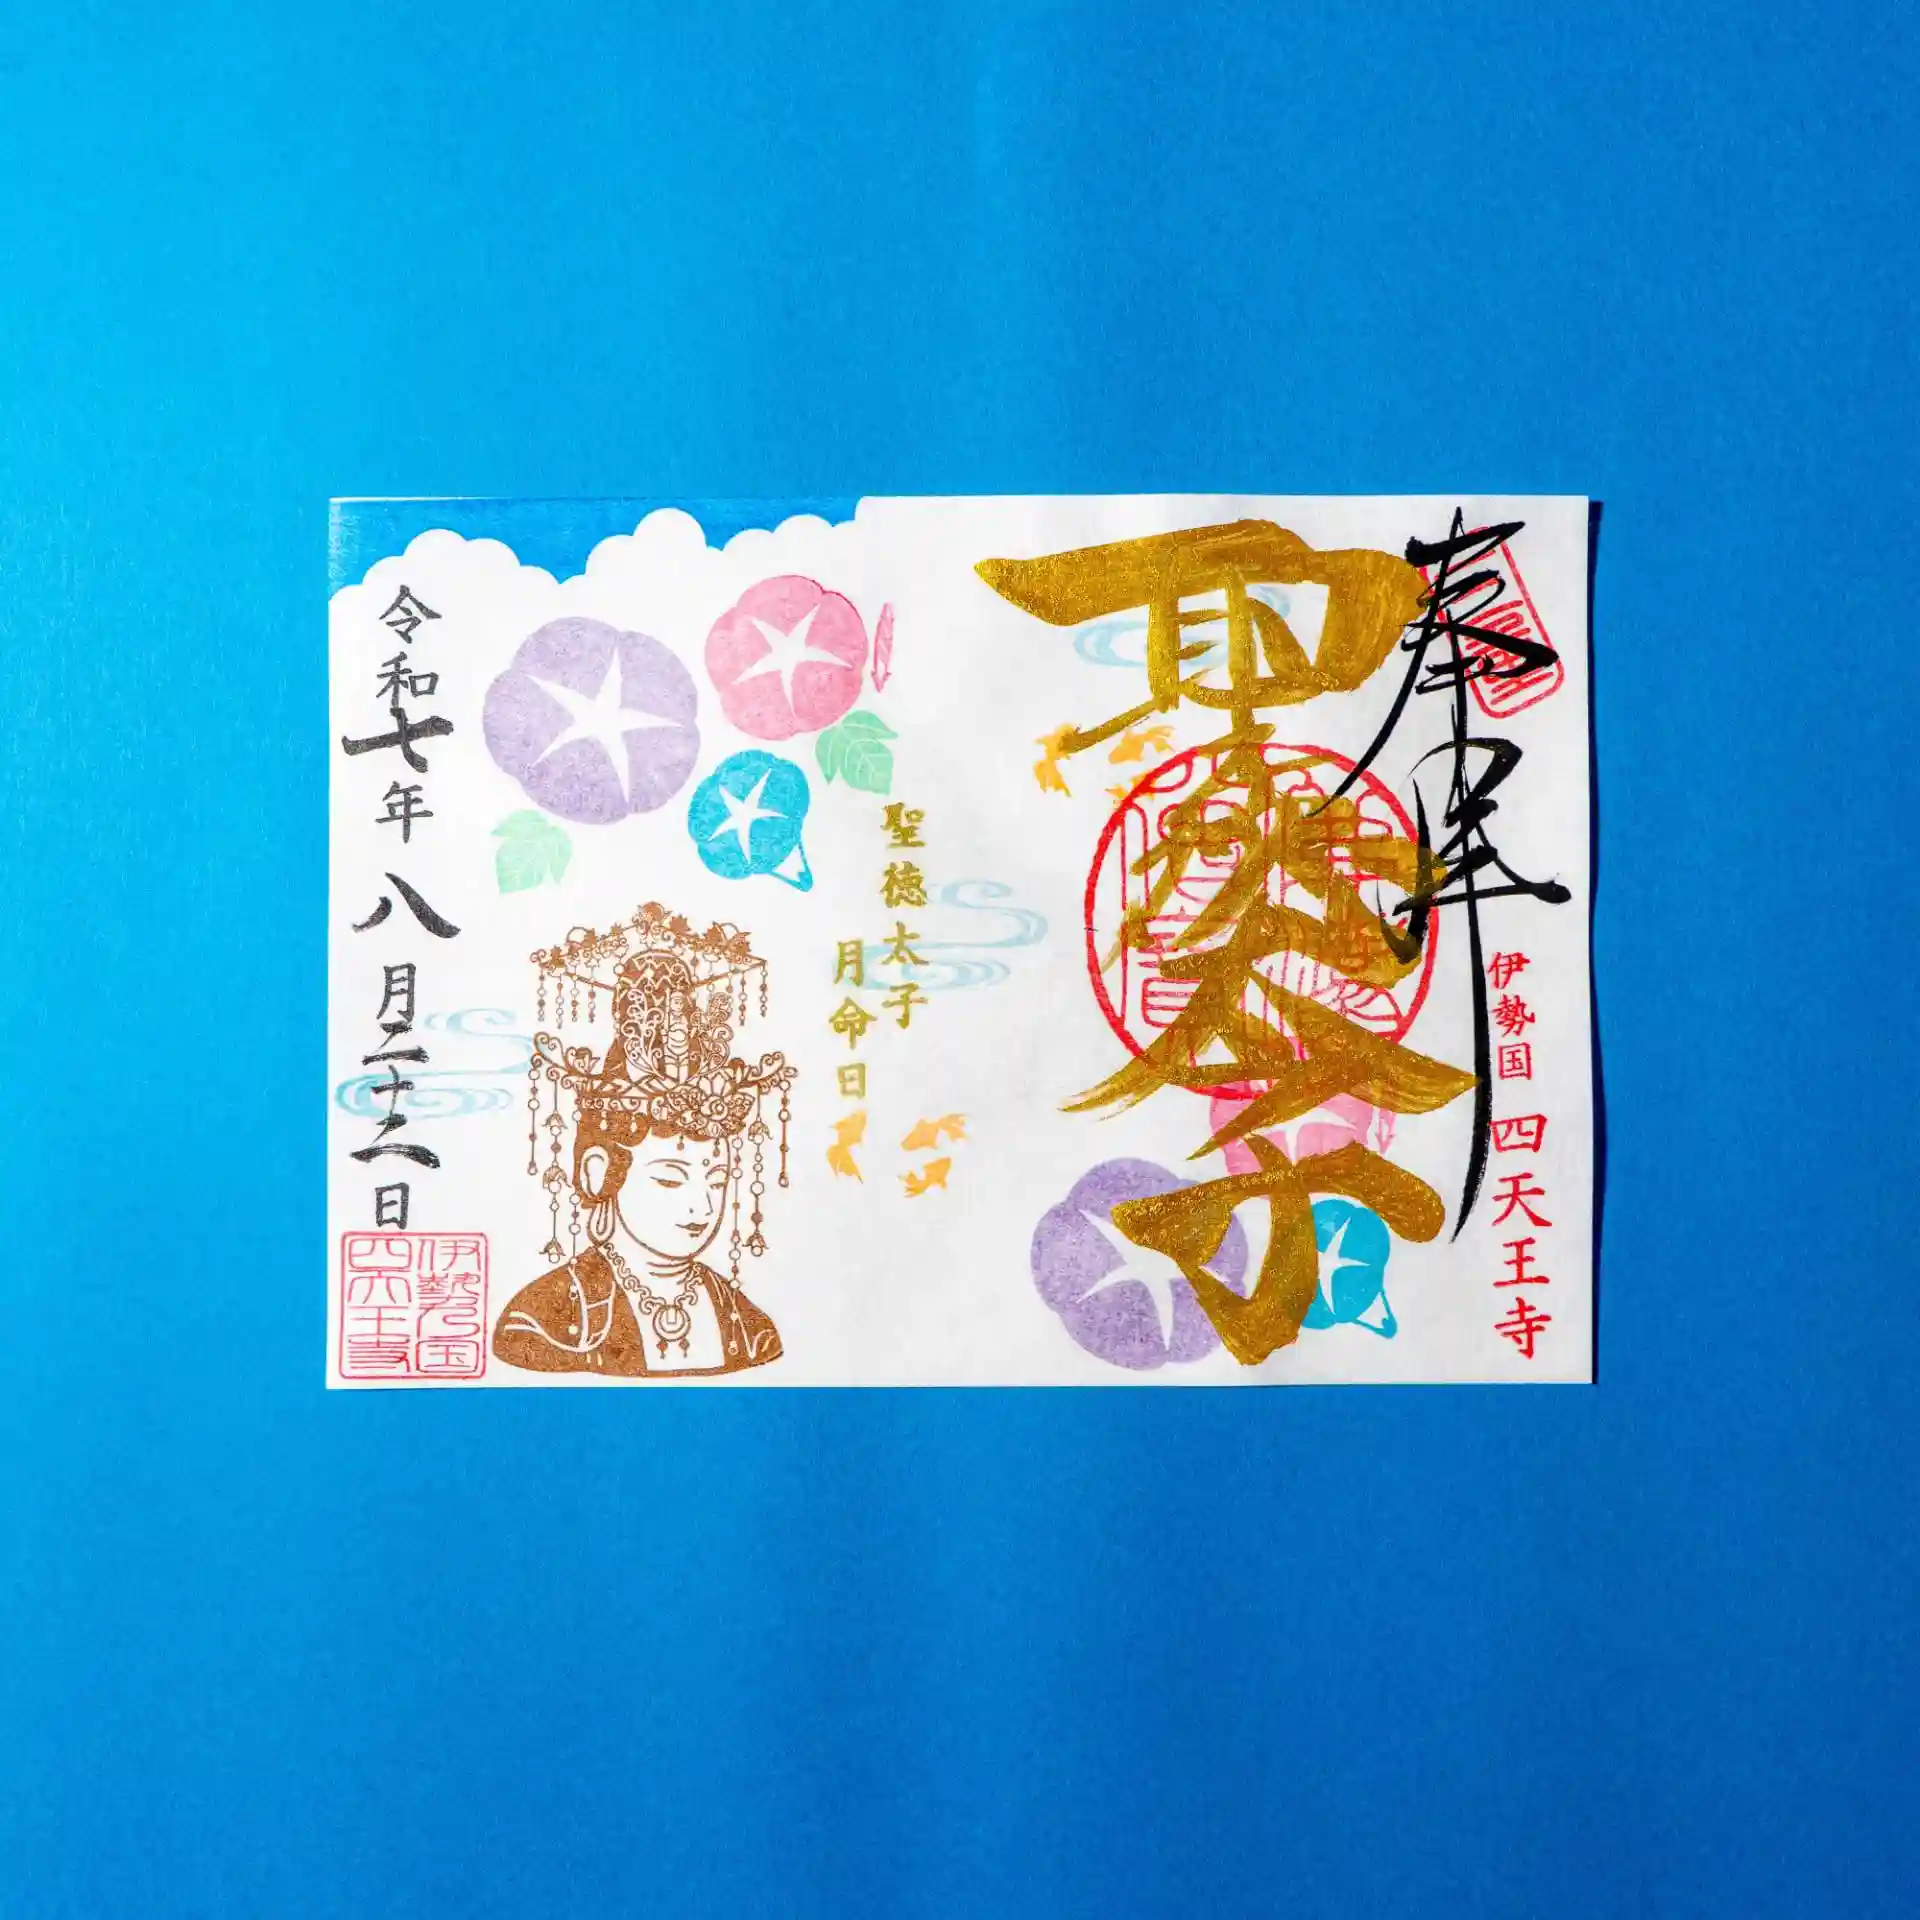 奉拝
伊勢国 四天王寺
聖徳太子
聖徳太子
月命日
令和七年八月二十二日
伊勢国
四天王寺